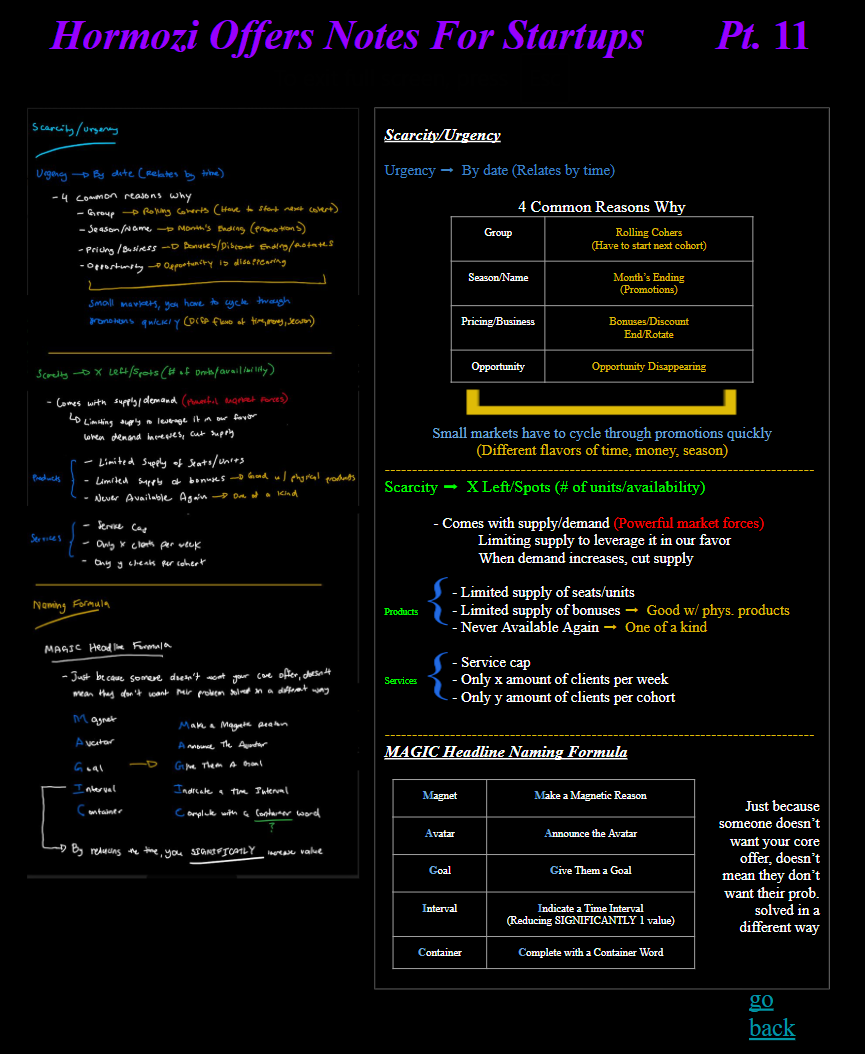 Hormozi Offers Notes For Startups Pt. 11
Scarcity/Urgency
Urgency → By date (Relates by time)
- 4 common reasons why
- Group → Rolling Coherts (Have to start next cohert)
- Season/Name → Month's Ending (Promotions)
- Pricing/Business → Bonuses/Discount Ending/Rotates
- Opportunity → Opportunity is disappearing
Small markets, you have to cycle through
promotions quickly (Diff flavors of time, money, season)
Scarcity → X Left/Spots (# of units/availibility)
- Comes with supply/demand (Powerful market forces)
Limiting supply to leverage it in our favor
When demand increases, cut supply
Products
- Limited Supply of Seats/Units
- Limited supply of bonuses → Good w/ physical products
- Never Available Again → One of a kind
Services
- Service Cap
- Only X clients per week
- Only y clients per cohert
Naming Formula
MAGIC Headline Formula
- Just because someone doesn't want your core offer, doesn't
mean they don't want their problem solved in a different way
Magnet Make a Magnetic Reason
Avatar Announce The Avatar
Goal → Give Them A Goal
Interval Indicate a Time Interval
Container Complete with a Container word
?
→ By reducing the time, you SIGNIFICANTLY increase value
Scarcity/Urgency
Urgency → By date (Relates by time)
4 Common Reasons Why
Group Rolling Cohers
(Have to start next cohort)
Season/Name Month's Ending
(Promotions)
Pricing/Business Bonuses/Discount
End/Rotate
Opportunity Opportunity Disappearing
Small markets have to cycle through promotions quickly
(Different flavors of time, money, season)
Scarcity → X Left/Spots (# of units/availability)
- Comes with supply/demand (Powerful market forces)
Limiting supply to leverage it in our favor
When demand increases, cut supply
Products
- Limited supply of seats/units
- Limited supply of bonuses → Good w/ phys. products
- Never Available Again → One of a kind
Services
- Service cap
- Only x amount of clients per week
- Only y amount of clients per cohort
MAGIC Headline Naming Formula
Magnet Make a Magnetic Reason
Avatar Announce the Avatar
Goal Give Them a Goal
Interval Indicate a Time Interval
(Reducing SIGNIFICANTLY 1 value)
Container Complete with a Container Word
Just because
someone doesn't
want your core
offer, doesn't
mean they don't
want their prob.
solved in a
different way
go
back